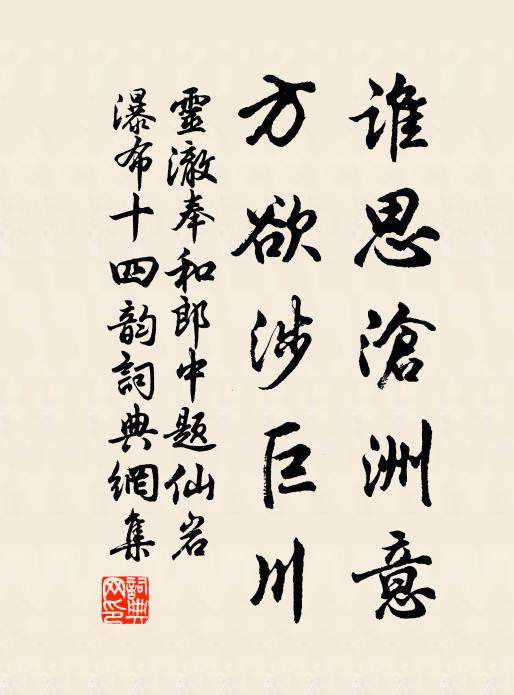 誰思滄洲意
方欲涉巨川
靈澈奉和郎中題仙岩
瀑布十四韵詞典網集